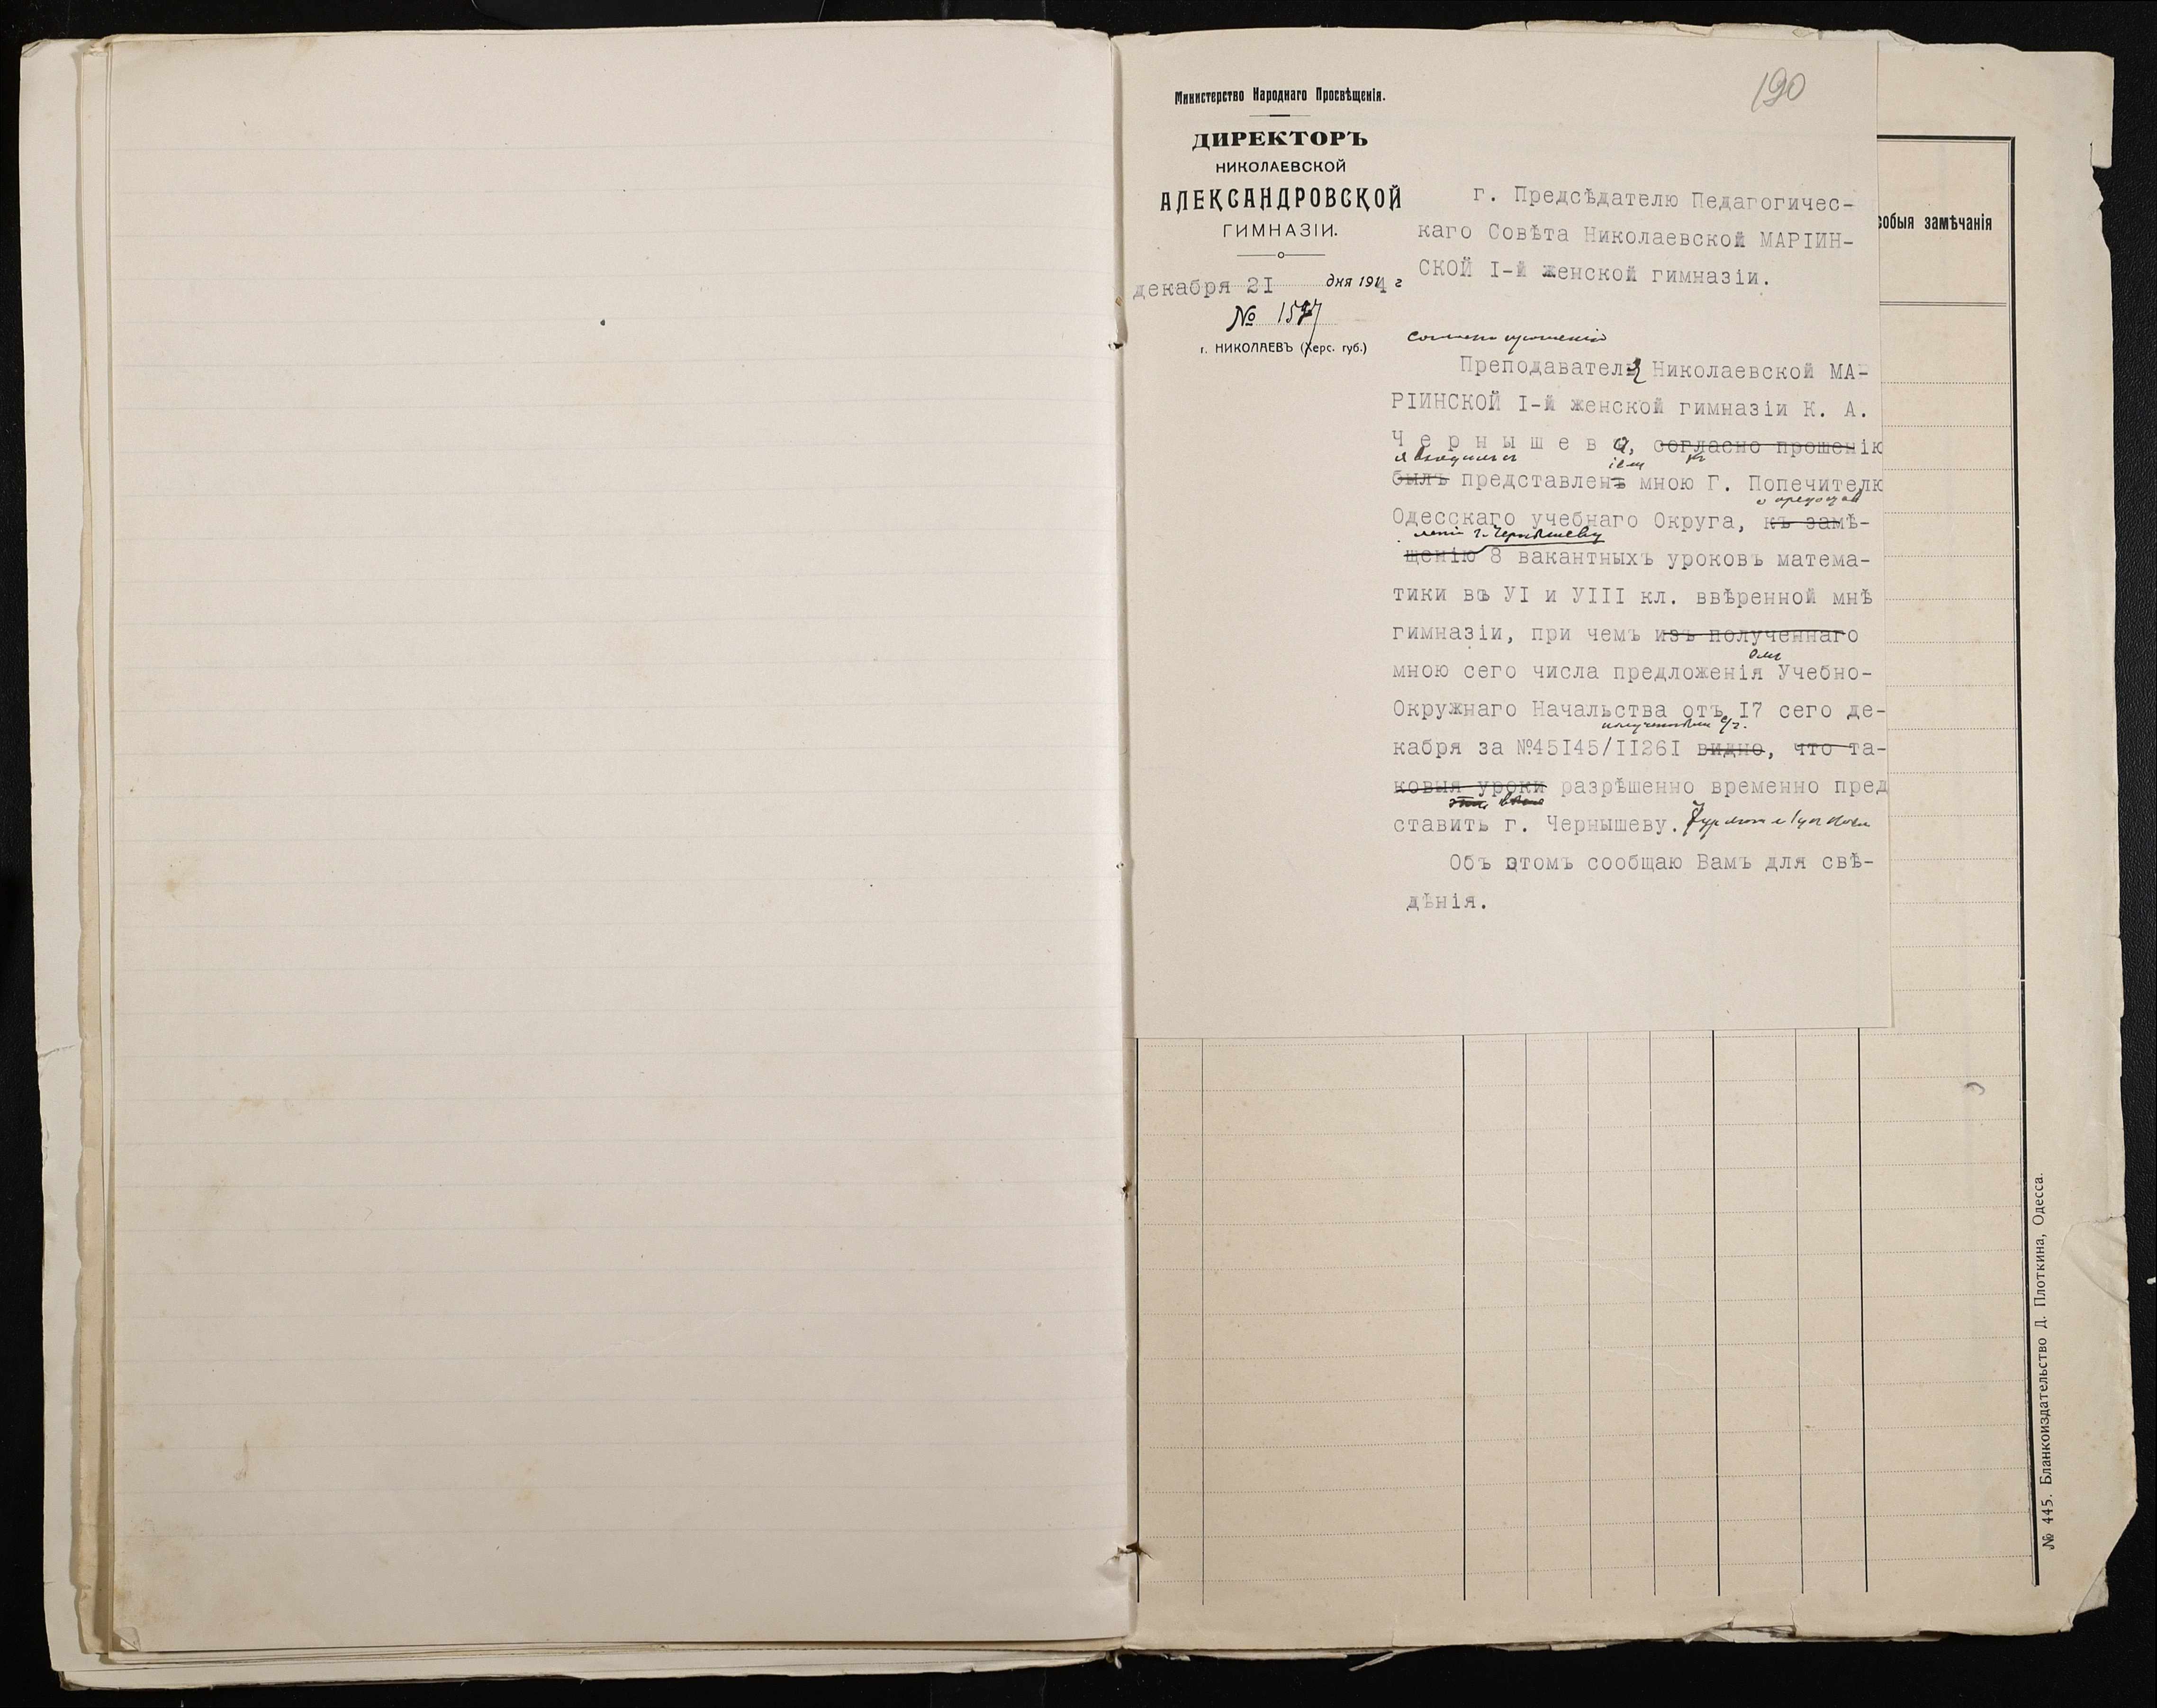 190
Министерство Народнаго Просвѣщенія.
ДИРЕКТОРЪ
НИКОЛАЕВСКОЙ
АЛЕКСАНДРОВСКОЙ
ГИМНАЗІИ.
декабря 21 дня 1914 г
№ 1577
г. НИКОЛАЕВЪ (Херс. губ.)
г. Предсѣдателю Педагогичес-
каго Совѣта Николаевской МАРІИН-
СКОЙ I-й женской гимназіи.
согласно прошенію
Преподавателя Николаевской МА-
РІИНСКОЙ I-й женской гимназіи К. А.
Чернышева, согласно прошенію
я входилъ съ
былъ представленъ мною Г. Попечителю
о предостав
Одесскаго учебнаго Округа, къ замѣ-
леніи г. Чернышеву
щенію 8 вакантныхъ уроковъ матема-
тики въ УI и УIII кл. ввѣренной мнѣ
гимназіи, при чемъ изъ полученнаго
мною сего числа предложенія Учебно-
Окружнаго Начальства отъ I7 сего де-
кабря за №45I45/II26I видно, что та-
ковыя уроки разрѣшенно временно пред
ставить г. Чернышеву.
Объ этомъ сообщаю Вамъ для свѣ-
дѣнія.
собыя замѣчанія
№ 445. Бланкоиздательство Д. Плоткина, Одесса.